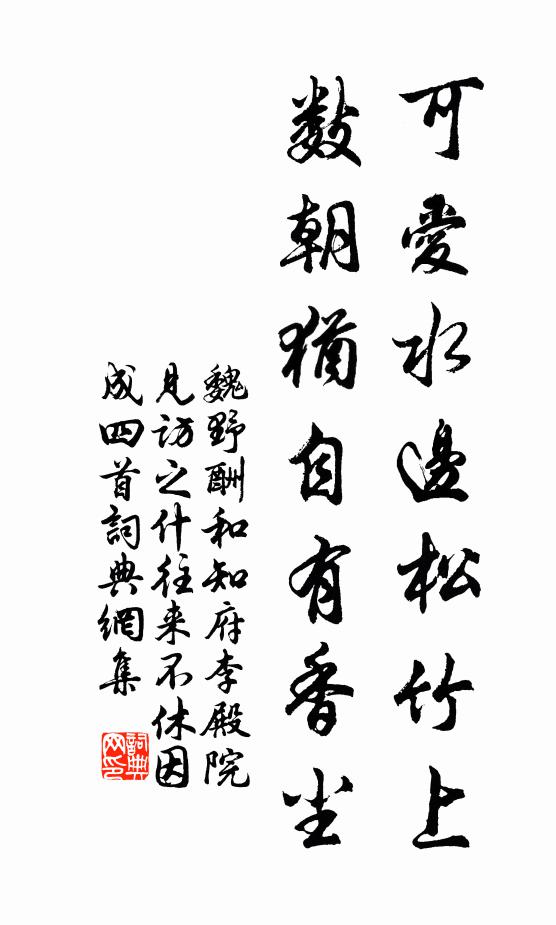 可愛水邊松竹上
數朝猶自有香尘
魏野酬和知府李殿院
見訪之什往来不休因
成四首詞典網集
詞典
网印